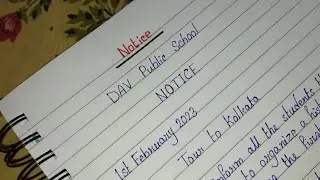 Notice
DAV Public School
NOTICE
1st February 2023
Tour to Kolkata
inform all the students
to organize a
the